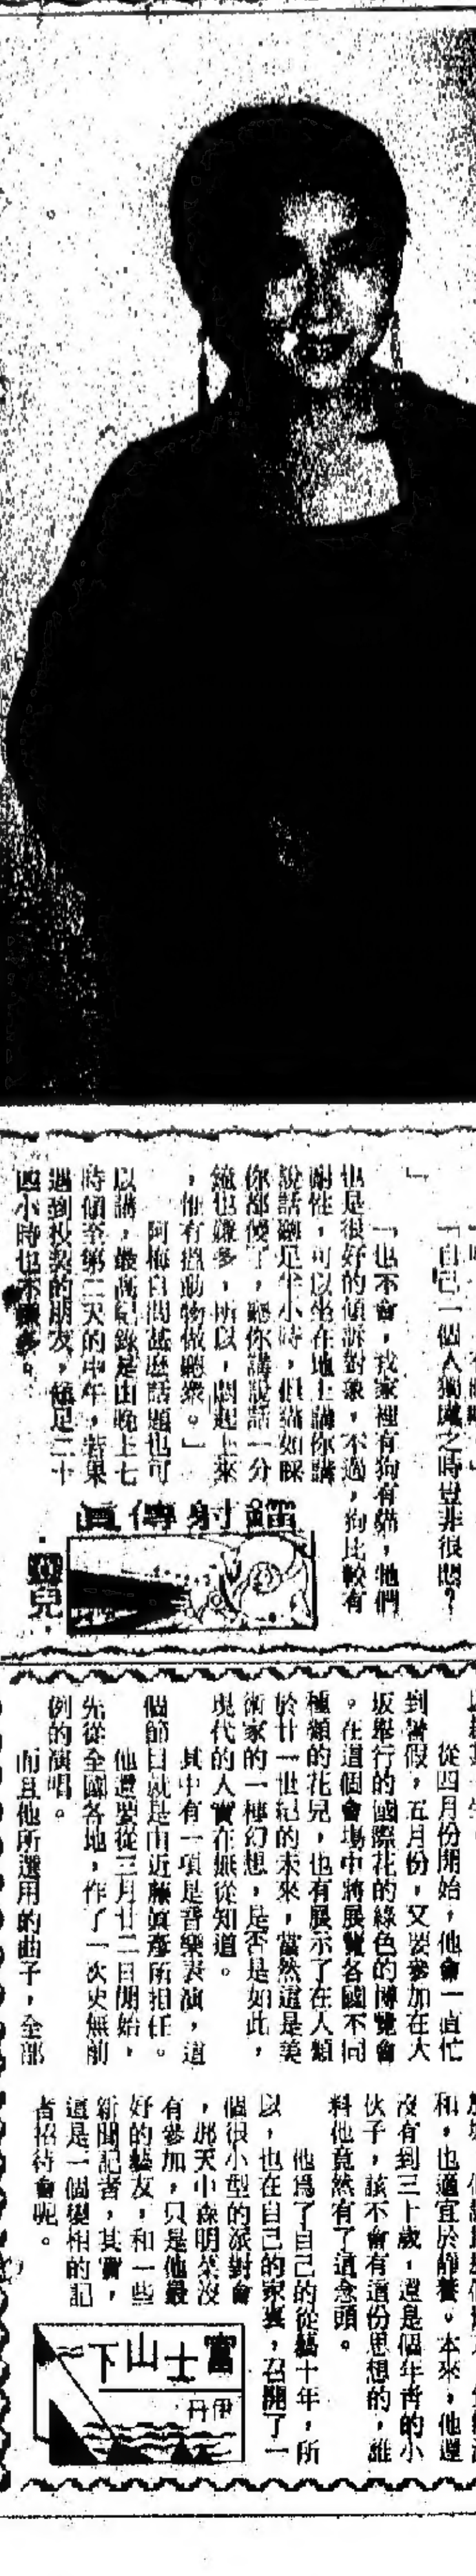 「自己一個人獨處之時豈非很悶？
」
「也不會，我家裡有狗有貓，牠們
也是很好的傾訴對象，不過，狗比較有
耐性，可以坐在地上講你講
說話翻足半小時，但貓如睬
你都傻了，聽你講說話一分
鐘也嫌多，所以，悶起上來
，他有搵動物做聽衆。」
阿梅日間甚麽話題也可
以講，最高紀錄是由晚上七
時傾至第二天的中午，若果
遇到投契的朋友，傾足二十
四小時也不嫌多。
鐳射傳眞
·兒·
從四月份開始，他會一直忙
到暑假，五月份，又要參加在大
坂舉行的國際花的綠色的博覽會
。在這個會場中將展覽各國不同
種類的花兒，也有展示了在人類
於廿一世紀的未來，當然這是美
術家的一種幻想，是否是如此，
現代的人實在無從知道。
其中有一項是音樂表演，這
個節目就是由近藤眞彥所担任。
他還要從三月廿二日開始，
先從全國各地，作了一次史無前
例的演唱。
而且他所選用的曲子，全部
和，也適宜於靜養。本來，他還
沒有到三十歲，還是個年青的小
伙子，該不會有這份思想的，誰
料他竟然有了這念頭。
他爲了自己的從藝十年，所
以，也在自己的家裏，召開了一
個很小型的派對會
，那天中森明菜沒
有參加，只是他最
好的藝友，和一些
新聞記者，其實，
這是一個變相的記
者招待會呢。
富士山下
伊丹